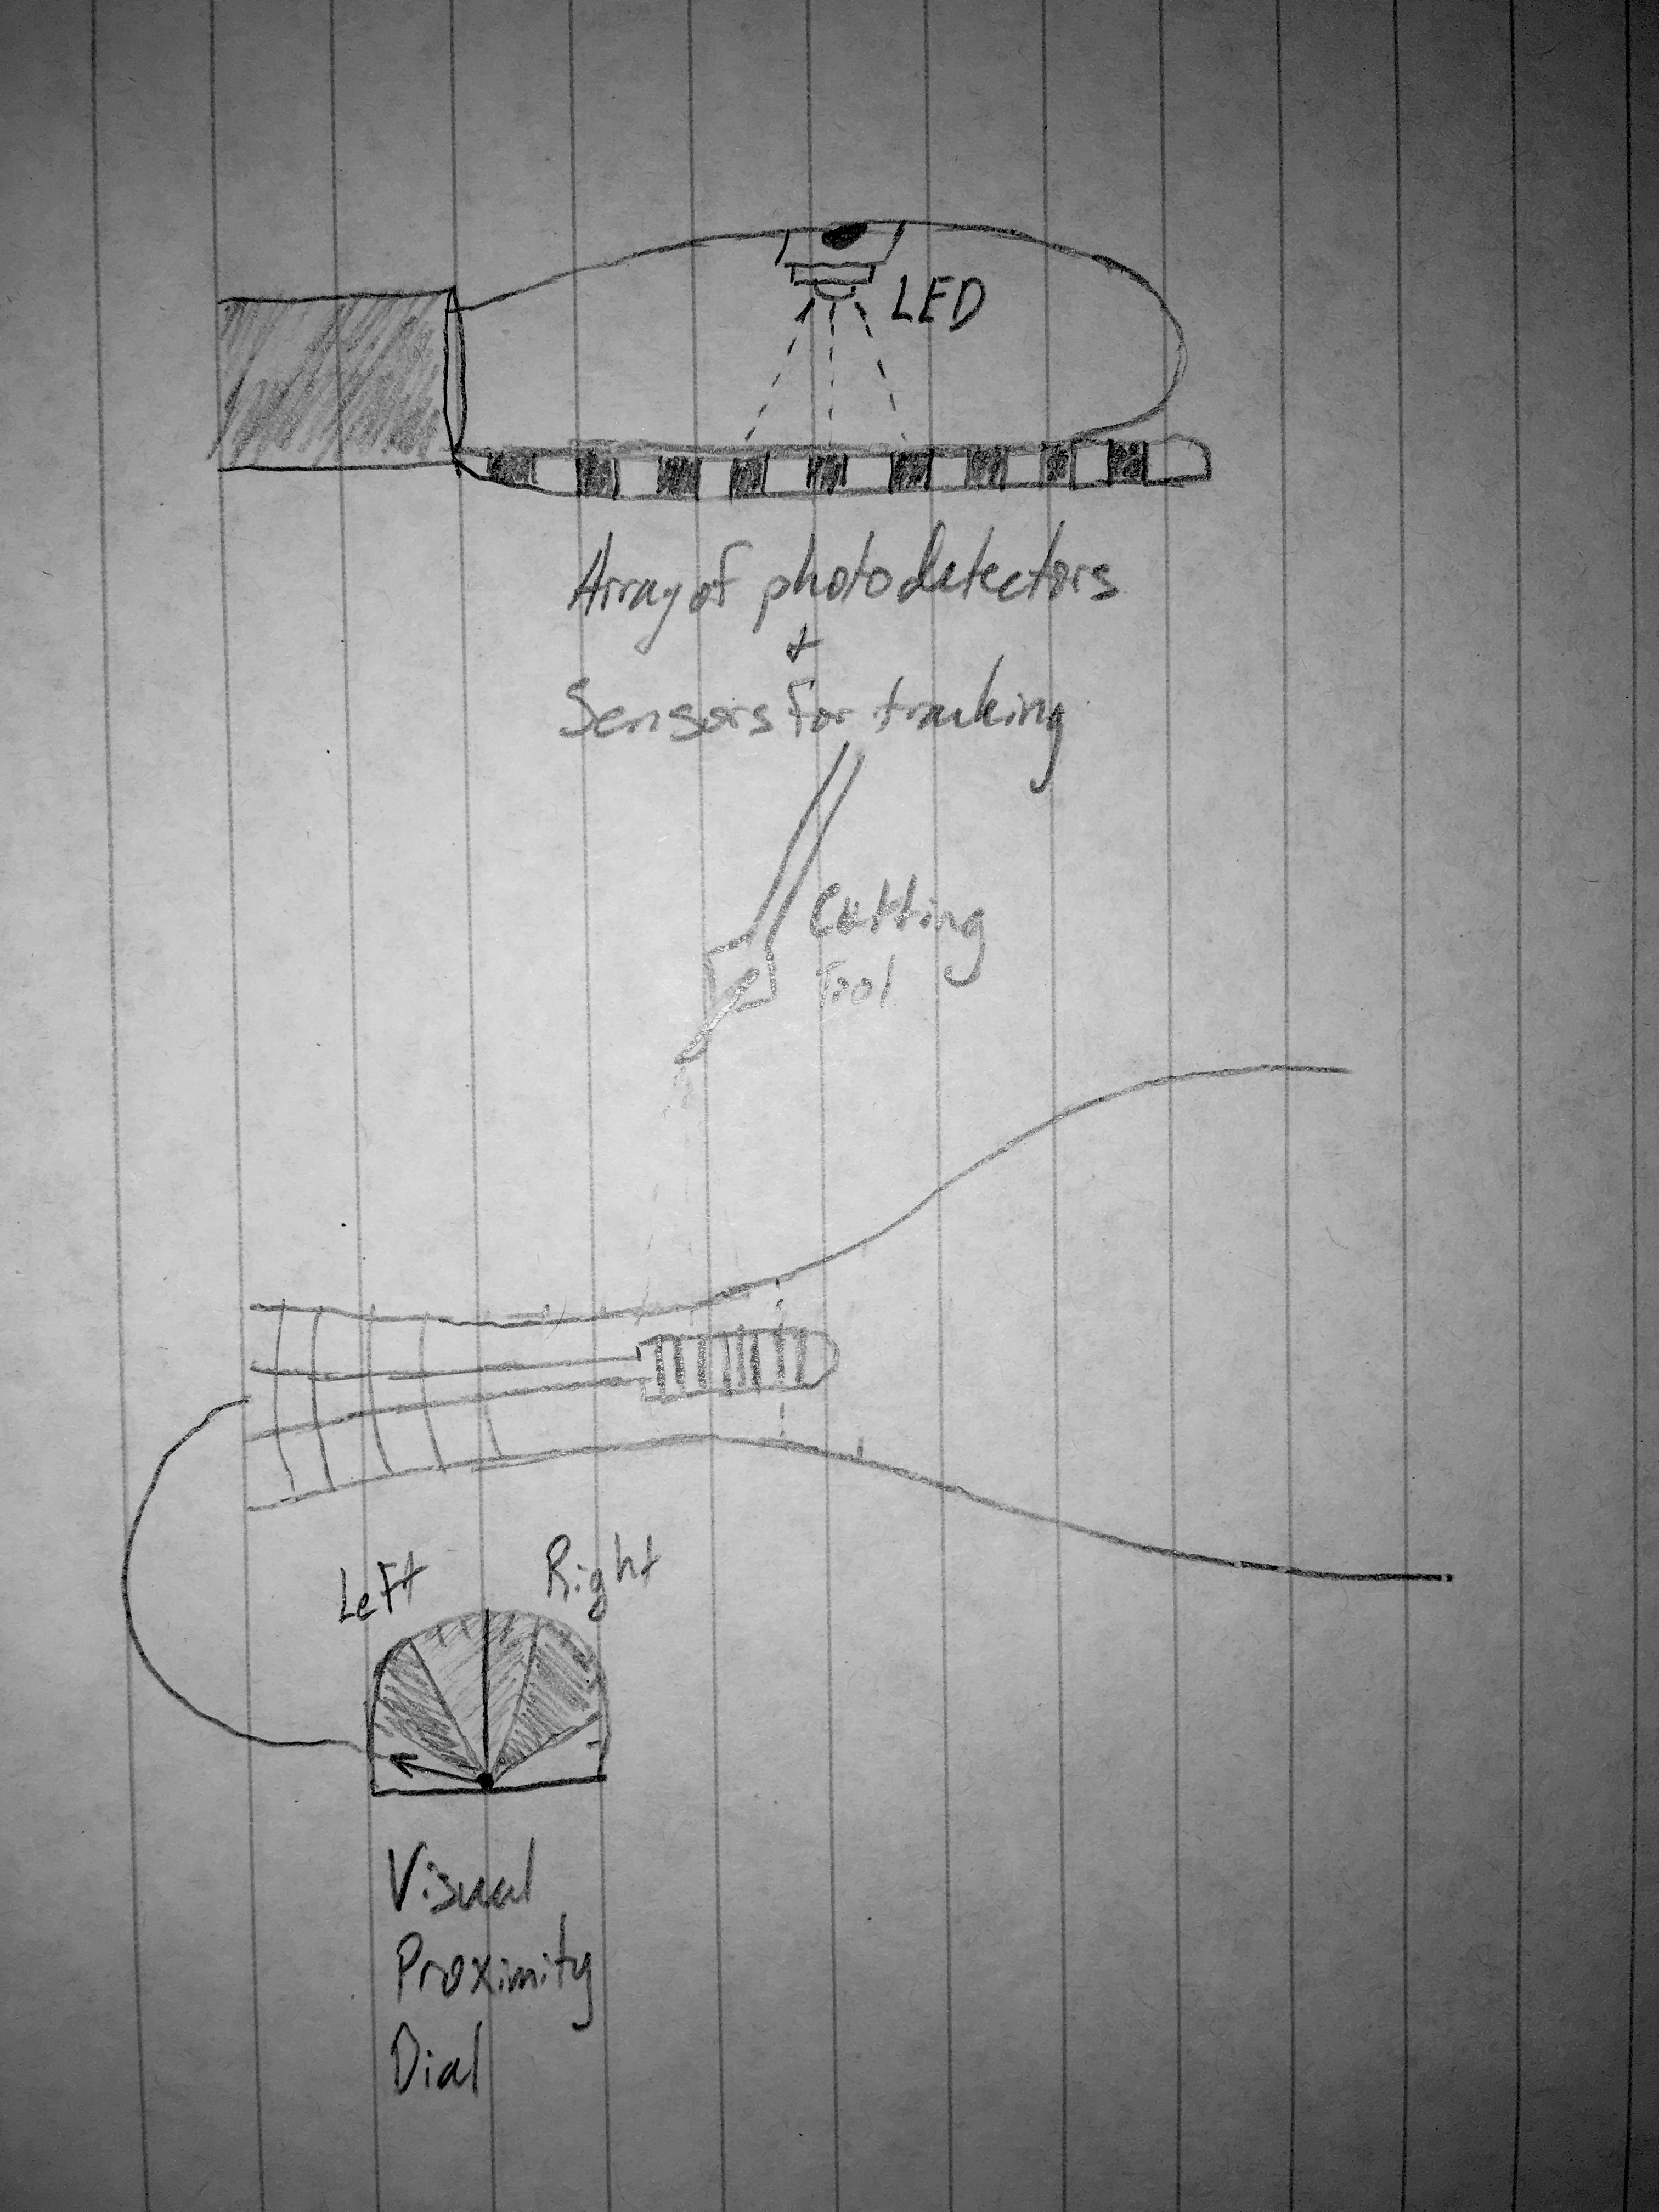 LED
Array of photodetectors
+
Sensors for tracking
Cutting
Tool
Left
Right
Visual
Proximity
Dial